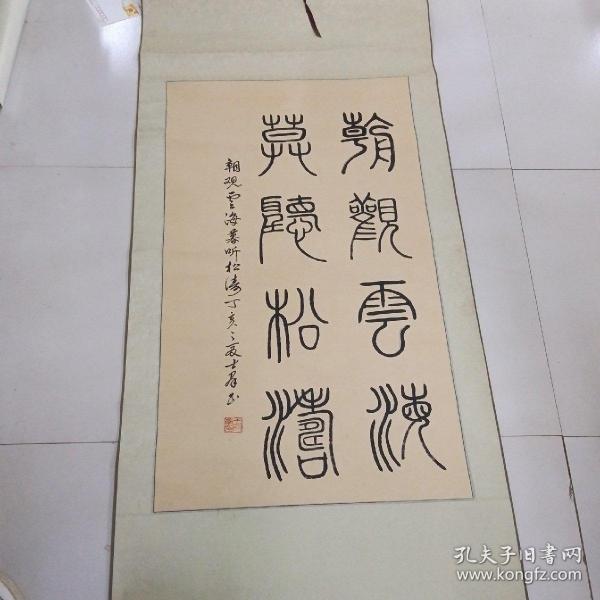 朝觀雲海
莫聽松濤
朝观雲海暮听松涛丁亥之夏
孔夫子旧书网
www.kongfz.com